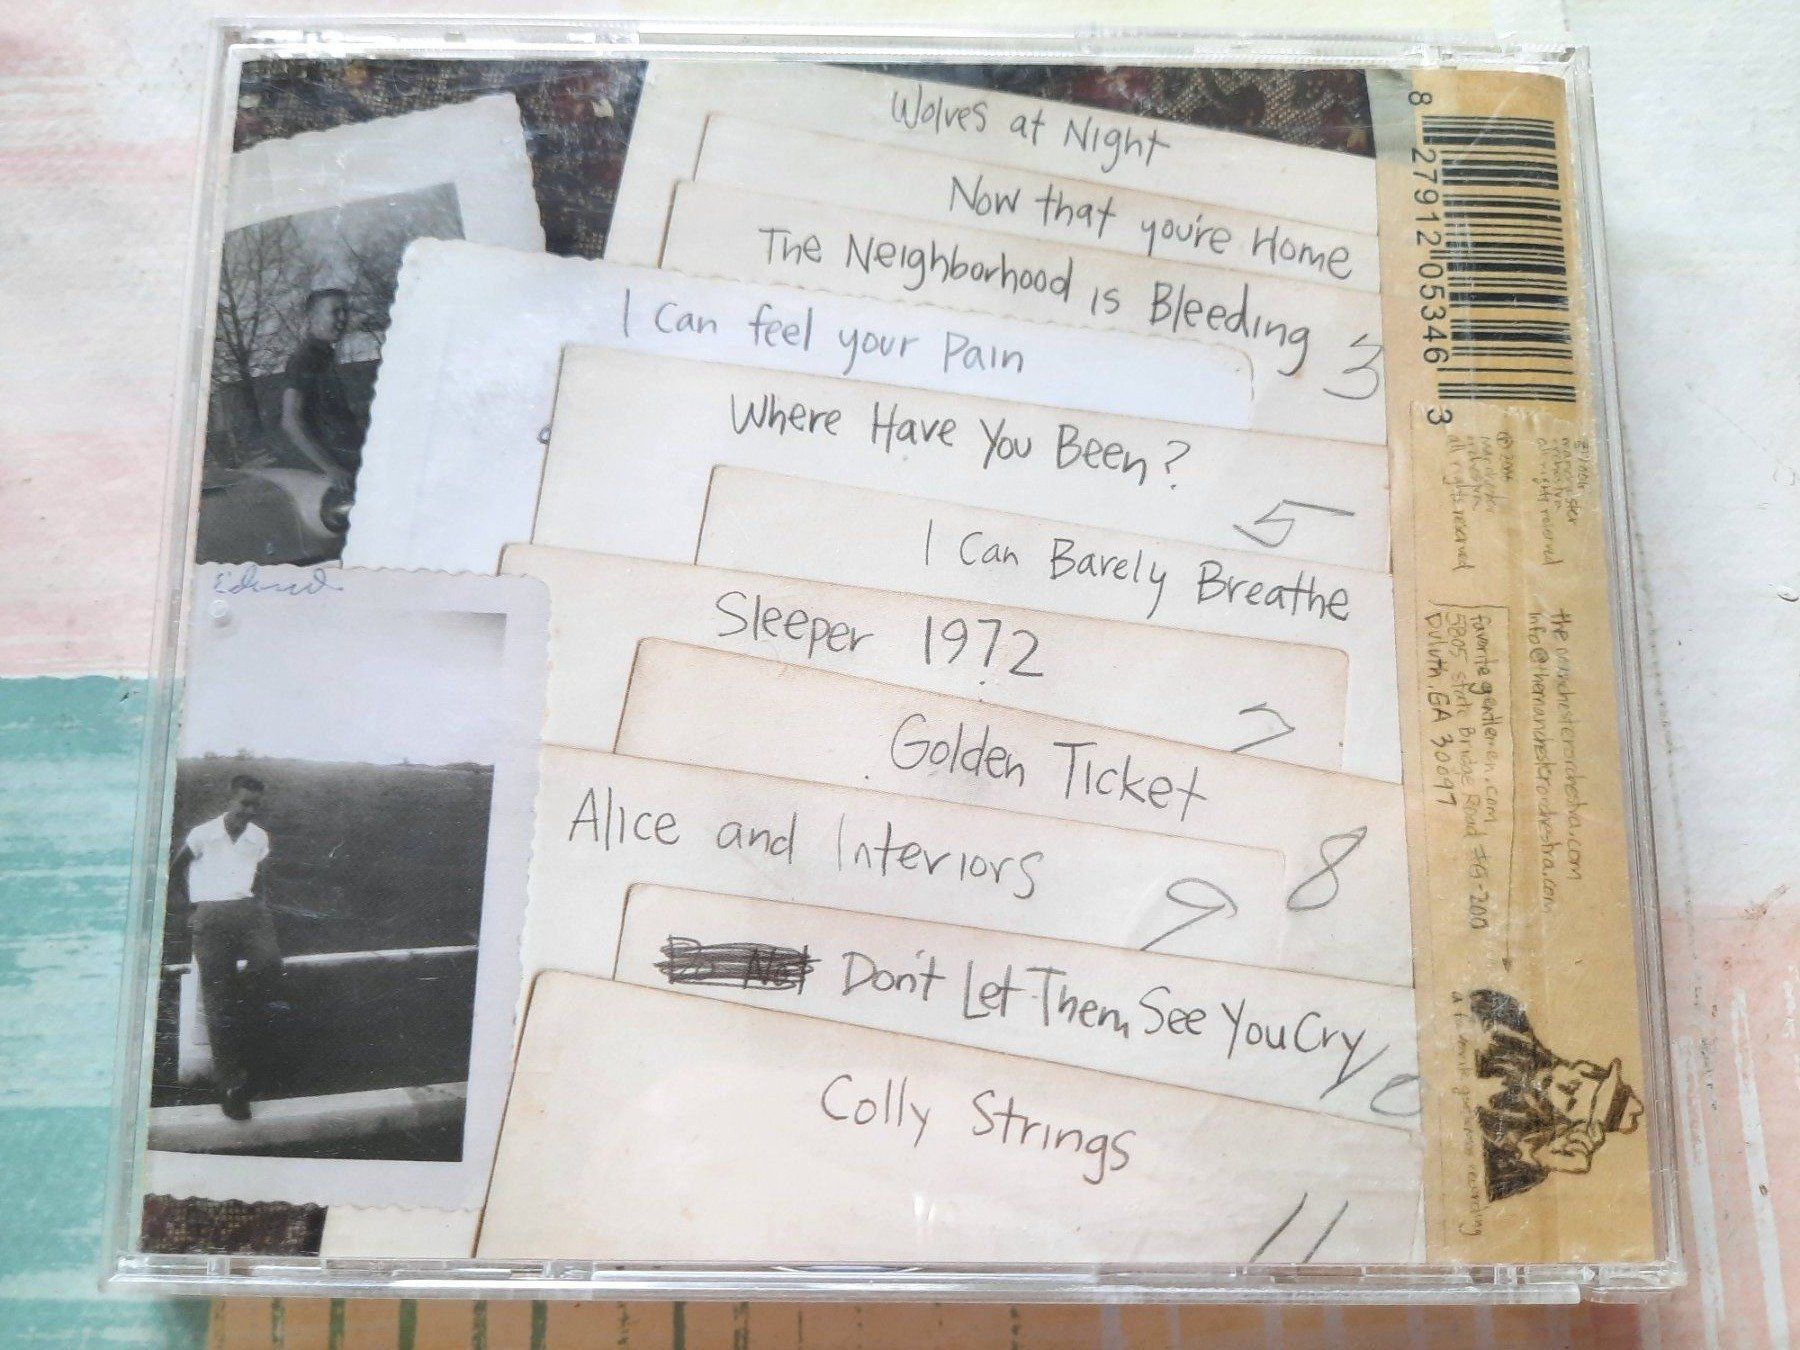 Wolves at Night
Now that you're Home
The Neighborhood is Bleeding
3
I Can feel your Pain
Where Have You Been?
5
I Can Barely Breathe
Sleeper 1972
7
Golden Ticket
8
Alice and Interiors
9
Don't Let Them See You Cry
10
Colly Strings
11
8 27912 05346 3
all rights reserved
all rights reserved
themanchesterorchestra.com
info@themanchesterorchestra.com
favorite gentlemen.com
5805 State Bridge Road #G-200
Duluth, GA 30097
a favorite gentlemen recording